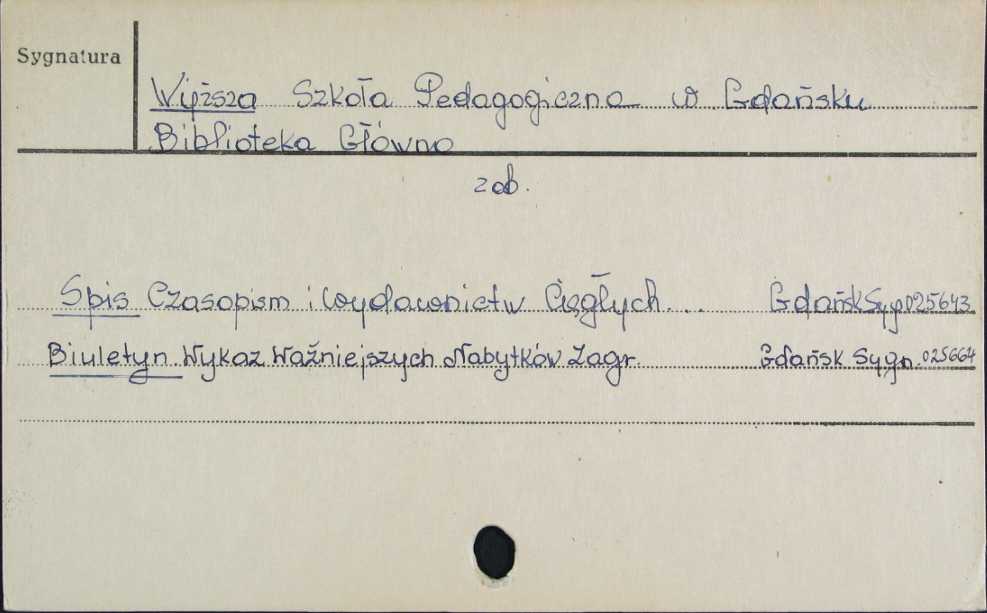 Sygnatura
Wyższa Szkoła Pedagogiczna w Gdańsku
Biblioteka Główna
zob.
Spis Czasopism i wydawnictw Ciągłych... Gdańsk Syg 025643
Biuletyn. Wykaz Ważniejszych Nabytków Zagr. Gdańsk Sygn. 025664